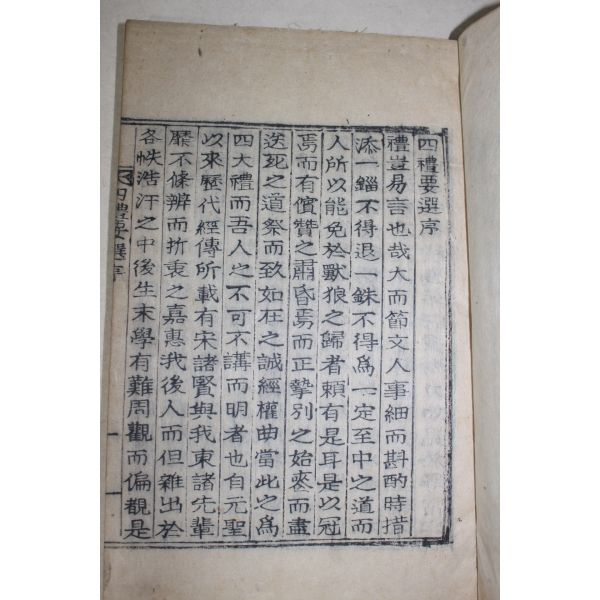 四禮要選序
禮豈易言也哉大而節文人事細而斟酌時措
添一錙不得退一銖不得爲一定至中之道而
人所以能免於獸狼之歸者頼有是耳是以冠
焉而有儐贊之肅昏焉而正摯別之始喪而盡
送死之道祭而致如在之誠經權曲當此之爲
四大禮而吾人之不可不講而明者也自元聖
以來歷代經傳所載有宋諸賢與我東諸先輩
靡不條辨而折衷之嘉惠我後人而但雜出於
各帙浩汗之中後生末學有難周觀而偏覩是
四禮要選序
一